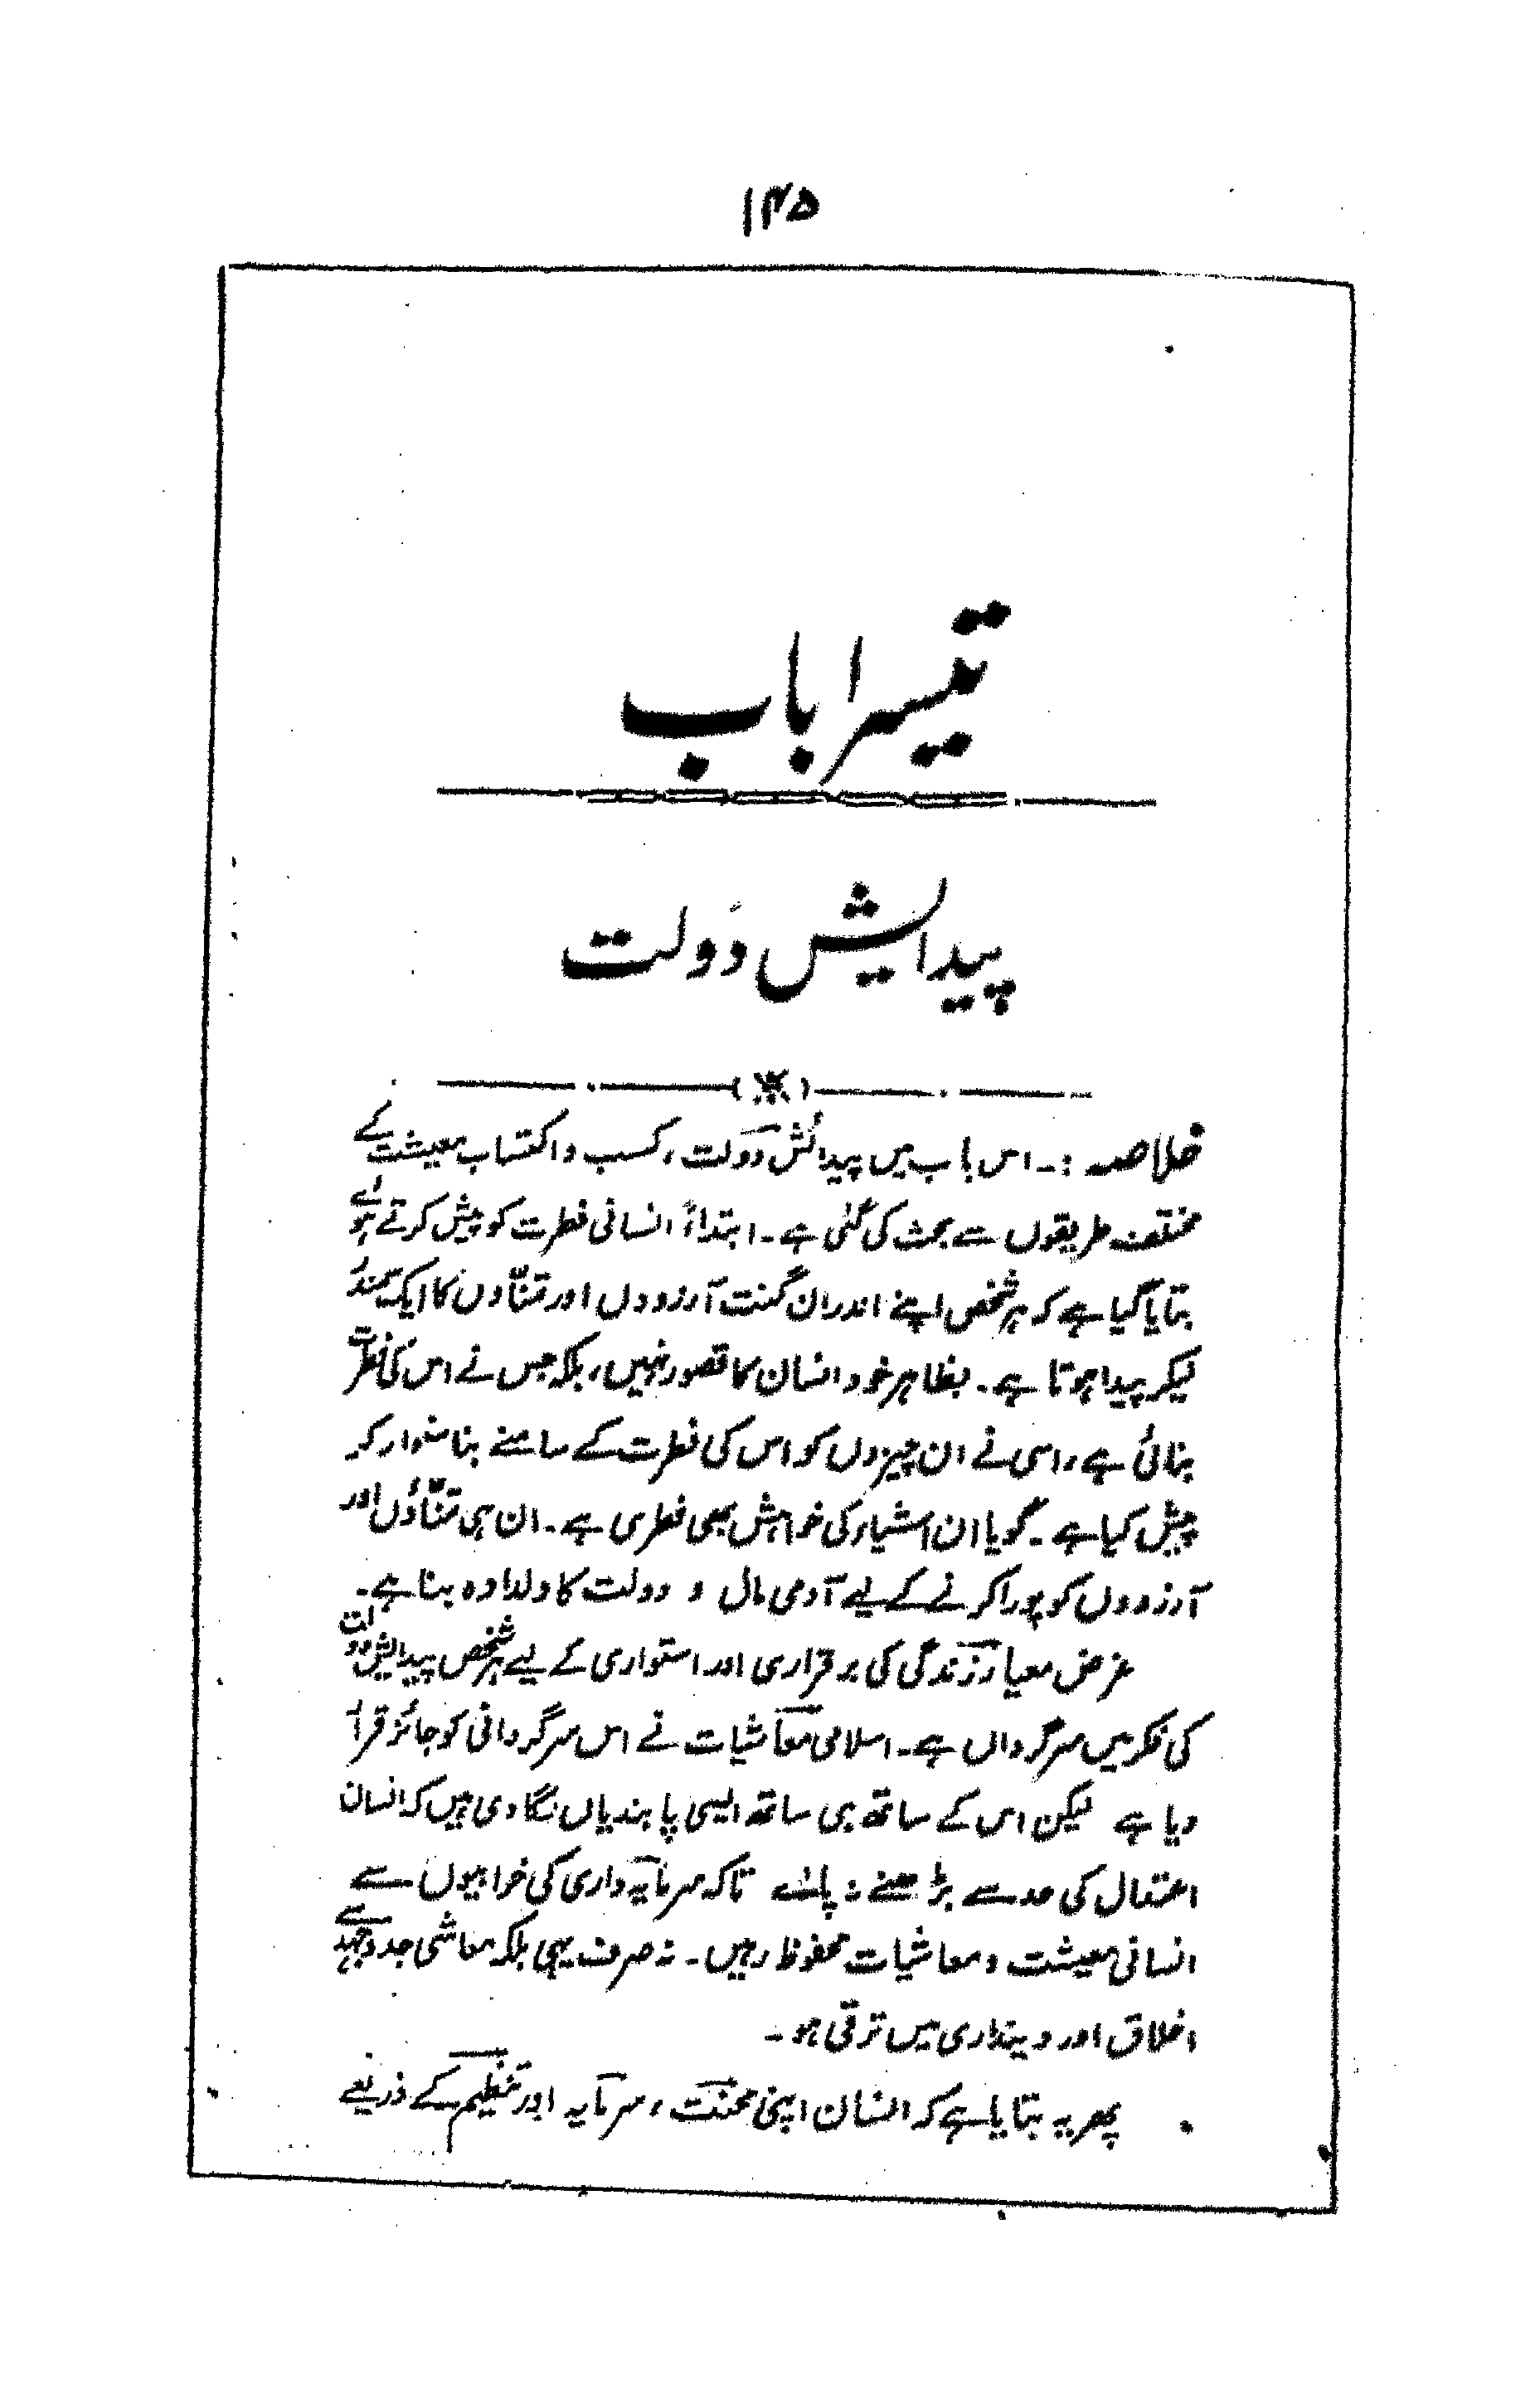 ۱۴۵
تیسرا باب
پیدایش دولت
خلاصہ :۔ اس باب میں پیدائش دولت، کسب و اکتساب معیشت کے
مختلف طریقوں سے بحث کی گئی ہے۔ ابتداءً انسانی فطرت کو پیش کرتے ہوئے
بتایا گیا ہے کہ ہر شخص اپنے اندر ان گنت آرزووں اور تمنّاوں کا ایک سمندر
لیکر پیدا ہوتا ہے۔ بظاہر خود انسان کا قصور نہیں، بلکہ جس نے اس کی فطرت
بنائی ہے، اسی نے ان چیزوں کو اس کی فطرت کے سامنے بنا سنوار کر
پیش کیا ہے۔ گویا ان اشیاء کی خواہش بھی فطری ہے۔ ان ہی تمنّاؤں اور
آرزووں کو پورا کرنے کے لیے آدمی مال و دولت کا دلدادہ بنا ہے۔
غرض معیار زندگی کی برقراری اور استواری کے لیے ہر شخص پیدایش دولت
کی فکر میں سرگرداں ہے۔ اسلامی معاشیات نے اس سرگردانی کو جائز قرار
دیا ہے لیکن اس کے ساتھ ہی ساتھ ایسی پابندیاں لگا دی ہیں کہ انسان
اعتدال کی حد سے بڑھنے نہ پائے تاکہ سرمایہ داری کی خرابیوں سے
انسانی معیشت و معاشیات محفوظ رہیں۔ نہ صرف یہی بلکہ معاشی جدوجہد سے
اخلاق اور دینداری میں ترقی ہو۔
پھر یہ بتایا ہے کہ انسان اپنی محنت، سرمایہ اور تنظیم کے ذریعے